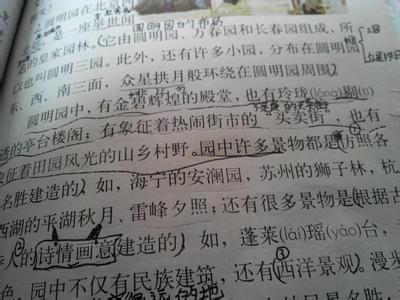 圆明园在北
圆明园的布局
是一座举世闻
的皇家园林。它由圆明园、万春园和长春园组成，所
以也叫圆明三园。此外，还有许多小园，分布在圆明园
东、西、南三面，众星拱月般环绕在圆明园周围。
圆明园中，有金碧辉煌的殿堂，也有玲珑(lóng)剔(tī)
透的亭台楼阁；有象征着热闹街市的“买卖街”，也有
象征着田园风光的山乡村野。园中许多景物都是仿照各
名胜建造的，如，海宁的安澜园，苏州的狮子林，杭
西湖的平湖秋月、雷峰夕照；还有很多景物是根据古
人的诗情画意建造的，如，蓬莱(lái)瑶(yáo)台，
色。园中不仅有民族建筑，还有西洋景观。漫